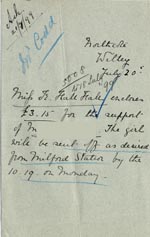 Ack
21/7/99
Northcote
Witley
July 20th
Miss F. Hall Hall encloses
£3.15 for the support
of M The girl
will be sent off as desired
from Milford Station by the
10.19 on Monday.